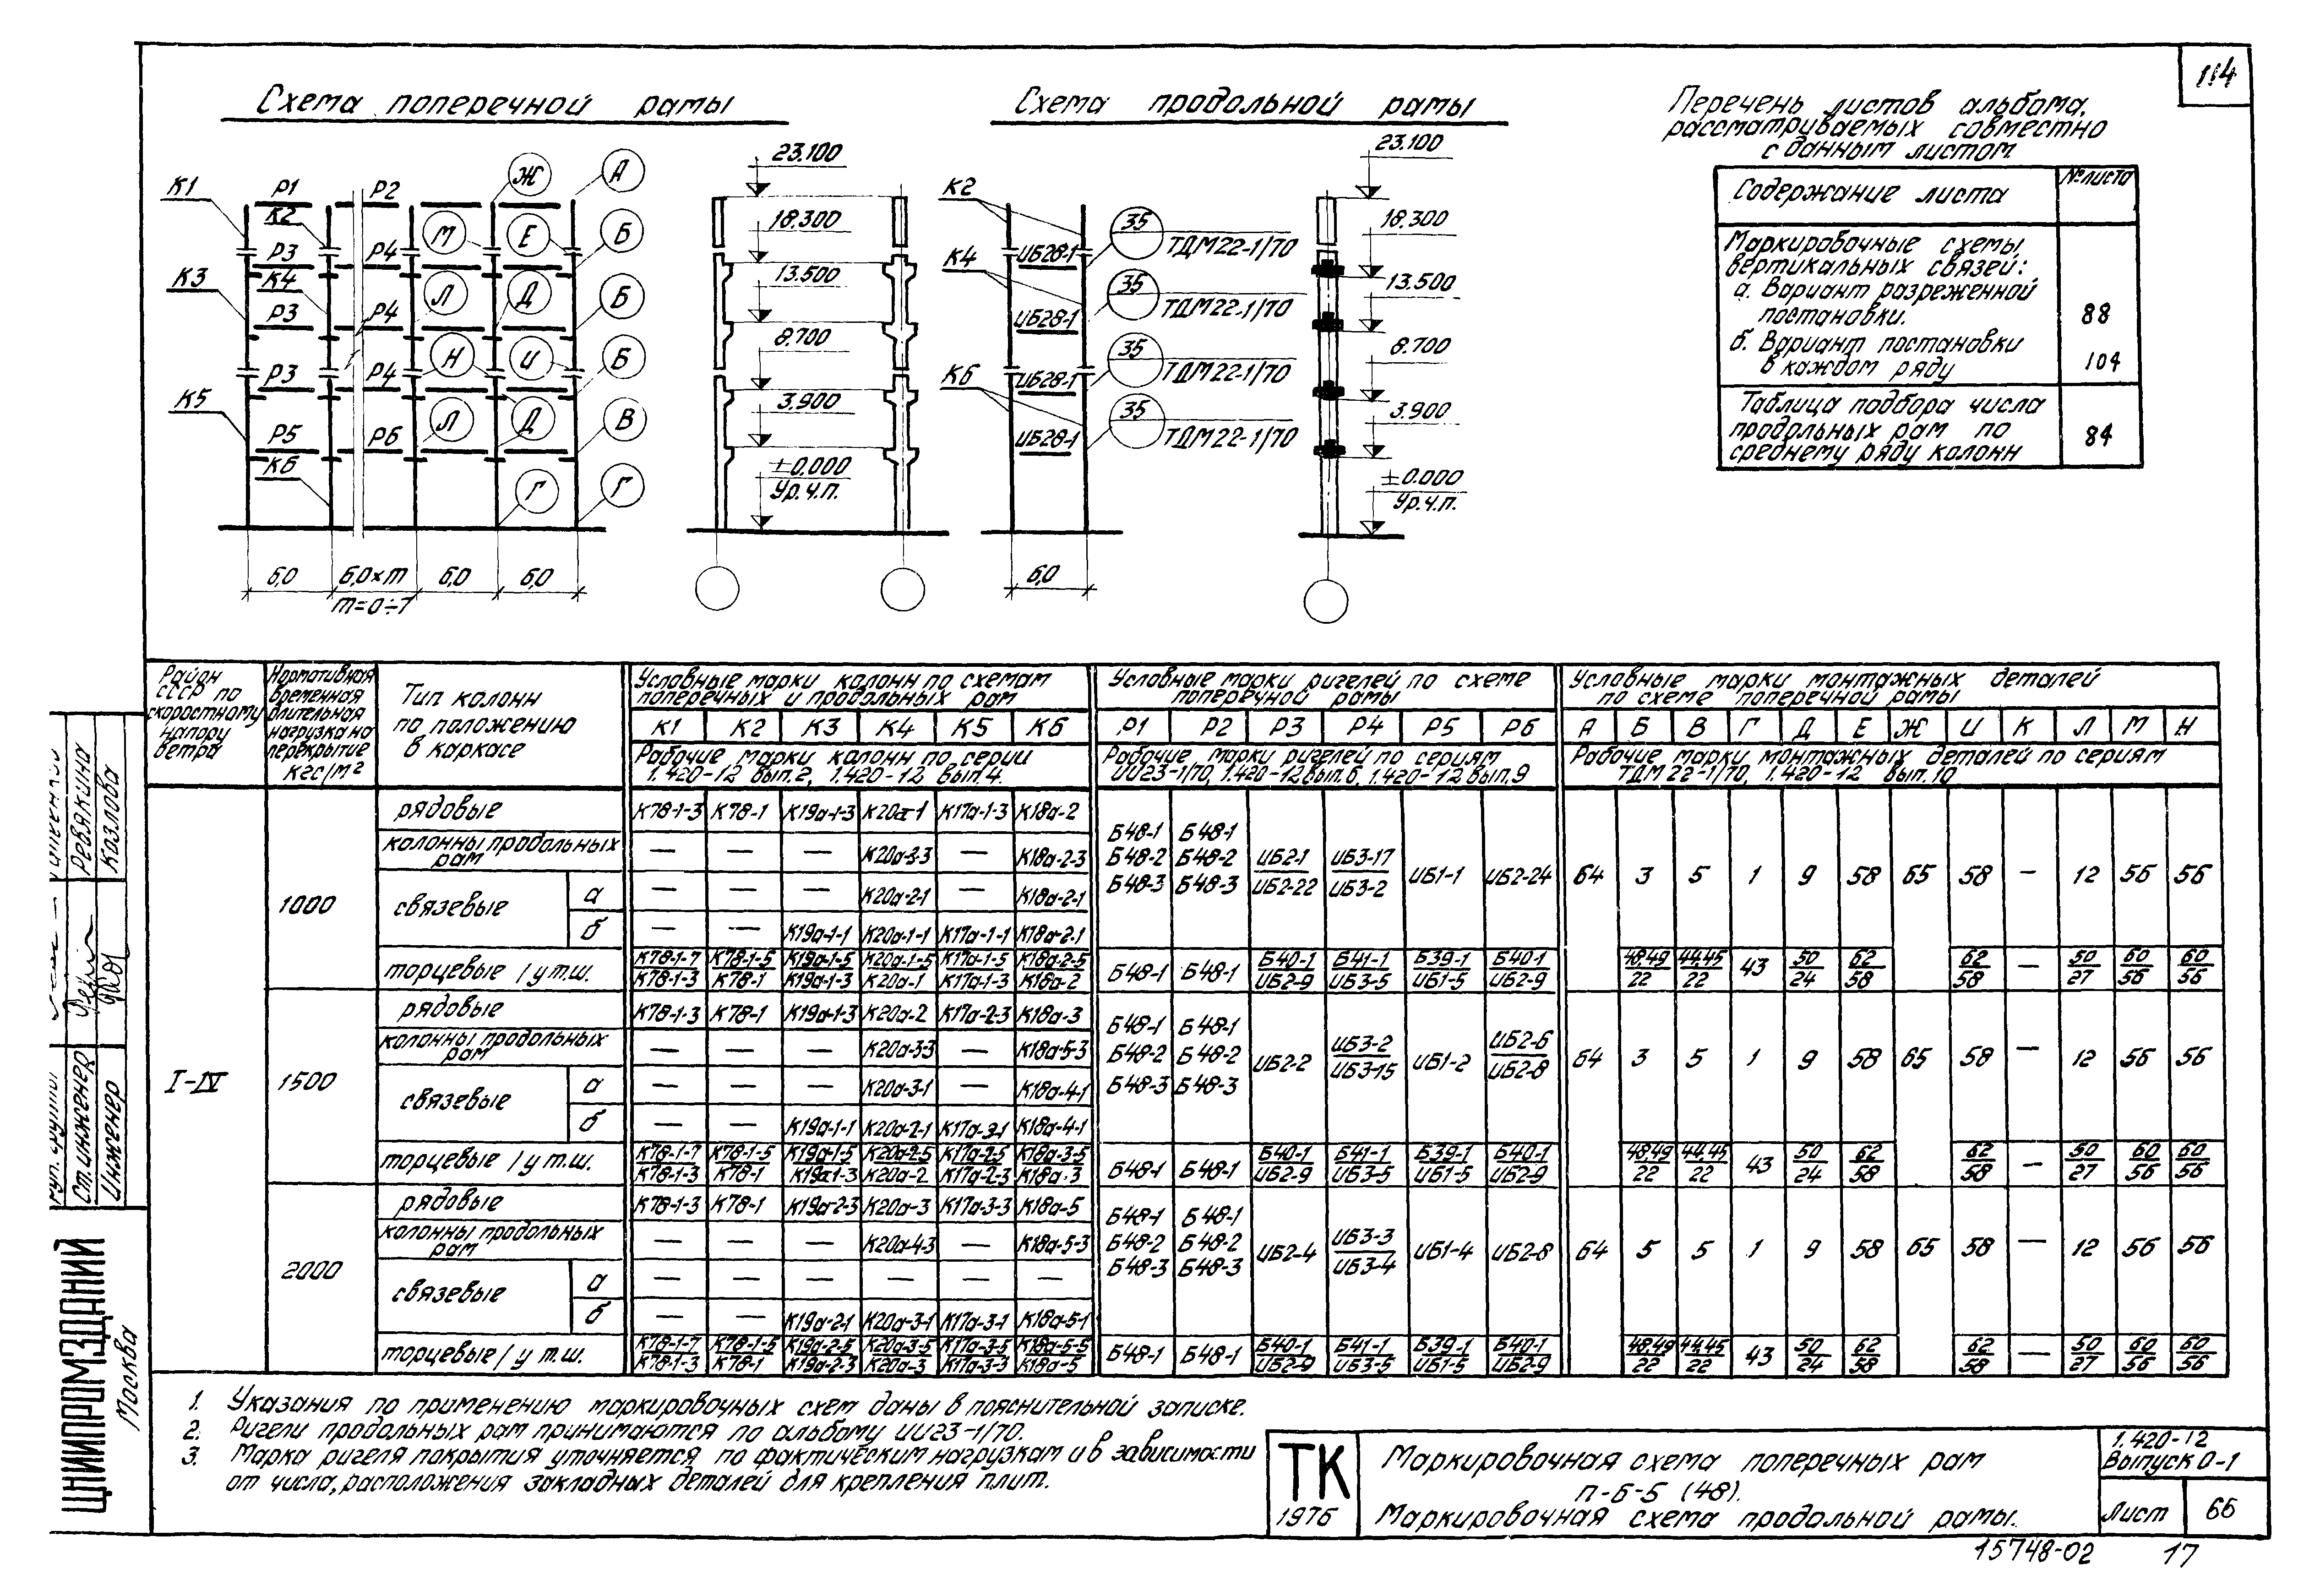 114
Схема поперечной рамы
Схема продольной рамы
Перечень листов альбома,
рассматриваемых совместно
с данным листом.
Содержание листа №листа
Маркировочные схемы
вертикальных связей:
а. Вариант разреженной
постановки. 88
б. Вариант постановки
в каждом ряду 104
Таблица подбора числа
продольных рам по
среднему ряду колонн 84
К1 Р1 К2 Р2 Ж А
Р3 Р4 М Е Б
К3 К4 Л Д Б
Р3 Р4 Н И Б
Р3 Р4
К5 Р5 Р6 Л Д В
К6 Г Г
6,0 6,0×m 6,0 6,0
m=0÷7
23.100
18.300
13.500
8.700
3.900
±0.000
Ур.ч.п.
К2 35 ТДМ22-1/70
ИБ28-1
К4 35 ТДМ22-1/70
ИБ28-1
35 ТДМ22-1/70
К6 ИБ28-1
35 ТДМ22-1/70
ИБ28-1
6,0
23.100
18.300
13.500
8.700
3.900
±0.000
Ур.ч.п.
Район СССР по скоростному напору ветра
Нормативная временная длительная нагрузка на перекрытие кгс/м²
Тип колонн по положению в каркасе
Условные марки колонн по схемам поперечных и продольных рам
К1 К2 К3 К4 К5 К6
Рабочие марки колонн по серии 1.420-12 вып.2, 1.420-12 вып.4.
Условные марки ригелей по схеме поперечной рамы
Р1 Р2 Р3 Р4 Р5 Р6
Рабочие марки ригелей по сериям ИИ23-1/70, 1.420-12 вып.6, 1.420-12 вып.9
Условные марки монтажных деталей по схеме поперечной рамы
А Б В Г Д Е Ж И К Л М Н
Рабочие марки монтажных деталей по сериям ТДМ 22-1/70, 1.420-12 вып.10
I-IV
1000
рядовые К78-1-3 К78-1 К19а-1-3 К20а-1 К17а-1-3 К18а-2
колонны продольных рам — — — К20а-2-3 — К18а-2-3
связевые а — — — К20а-2-1 — К18а-2-1
б — — К19а-1-1 К20а-1-1 К17а-1-1 К18а-2-1
Б48-1 Б48-2 Б48-3 Б48-1 Б48-2 Б48-3 ИБ2-1/ИБ2-22 ИБ3-17/ИБ3-2 ИБ1-1 ИБ2-24
64 3 5 1 9 58 65 58 — 12 56 56
торцевые / у т.ш. К78-1-7/К78-1-3 К78-1-5/К78-1 К19а-1-5/К19а-1-3 К20а-1-5/К20а-1 К17а-1-5/К17а-1-3 К18а-2-5/К18а-2
Б48-1 Б48-1 Б40-1/ИБ2-9 Б41-1/ИБ3-5 Б39-1/ИБ1-5 Б40-1/ИБ2-9
48,49/22 44,45/22 43 50/24 62/58 62/58 — 50/27 60/56 60/56
1500
рядовые К78-1-3 К78-1 К19а-1-3 К20а-2 К17а-2-3 К18а-3
колонны продольных рам — — — К20а-3-3 — К18а-5-3
связевые а — — — К20а-3-1 — К18а-4-1
б — — К19а-1-1 К20а-2-1 К17а-3-1 К18а-4-1
Б48-1 Б48-2 Б48-3 Б48-1 Б48-2 Б48-3 ИБ2-2 ИБ3-2/ИБ3-15 ИБ1-2 ИБ2-6/ИБ2-8
64 3 5 1 9 58 65 58 — 12 56 56
торцевые / у т.ш. К78-1-7/К78-1-3 К78-1-5/К78-1 К19а-1-5/К19а-1-3 К20а-2-5/К20а-2 К17а-2-5/К17а-2-3 К18а-3-5/К18а-3
Б48-1 Б48-1 Б40-1/ИБ2-9 Б41-1/ИБ3-5 Б39-1/ИБ1-5 Б40-1/ИБ2-9
48,49/22 44,45/22 43 50/24 62/58 62/58 — 50/27 60/56 60/56
2000
рядовые К78-1-3 К78-1 К19а-2-3 К20а-3 К17а-3-3 К18а-5
колонны продольных рам — — — К20а-4-3 — К18а-5-3
связевые а — — — — — —
б — — К19а-2-1 К20а-3-1 К17а-3-1 К18а-5-1
Б48-1 Б48-2 Б48-3 Б48-1 Б48-2 Б48-3 ИБ2-4 ИБ3-3/ИБ3-4 ИБ1-4 ИБ2-8
64 5 5 1 9 58 65 58 — 12 56 56
торцевые / у т.ш. К78-1-7/К78-1-3 К78-1-5/К78-1 К19а-2-5/К19а-2-3 К20а-3-5/К20а-3 К17а-3-5/К17а-3-3 К18а-5-5/К18а-5
Б48-1 Б48-1 Б40-1/ИБ2-9 Б41-1/ИБ3-5 Б39-1/ИБ1-5 Б40-1/ИБ2-9
48,49/22 44,45/22 43 50/24 62/58 62/58 — 50/27 60/56 60/56
1. Указания по применению маркировочных схем даны в пояснительной записке.
2. Ригели продольных рам принимаются по альбому ИИ23-1/70.
3. Марка ригеля покрытия уточняется по фактическим нагрузкам и в зависимости
от числа, расположения закладных деталей для крепления плит.
ТК
1976
Маркировочная схема поперечных рам
П-6-5 (48).
Маркировочная схема продольной рамы.
1.420-12
Выпуск 0-1
Лист 66
15748-02 17
Ревякина
Козлова
Ст.инженер
Инженер
ЦНИИПРОМЗДАНИЙ
Москва